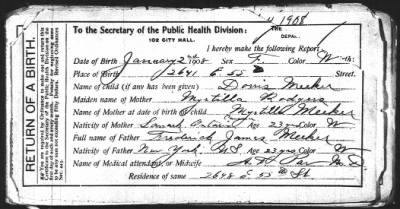 1908
THE
DEPAR.
To the Secretary of the Public Health Division:
102 CITY HALL.
I hereby make the following Report
Date of Birth January 2nd 1908 Sex F. Color W
Place of Birth 2641 E. 55 Street.
Name of child (if any has been given) Doris Meeker
Maiden name of Mother Myrtilla Rodgers
Name of Mother at date of birth of child Myrtilla Meeker
Nativity of Mother Ontario Age 23 yrs Color W
Full name of Father Frederick James Meeker
Nativity of Father New York U.S. Age 23 yrs Color W
Name of Medical attendant, or Midwife M.D.
Residence of same 2648 E. 55th St.
RETURN OF A BIRTH.